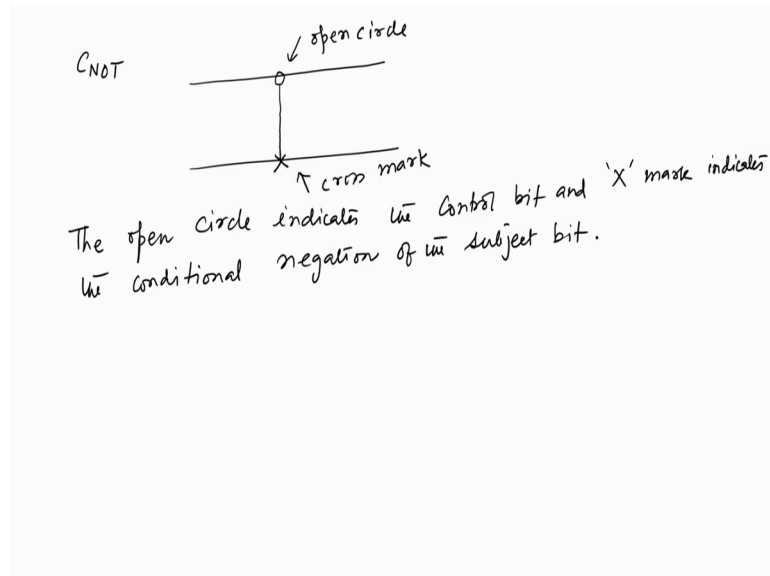 open circle
CNOT
cross mark
The open circle indicates the Control bit and 'X' mark indicates
the conditional negation of the subject bit.